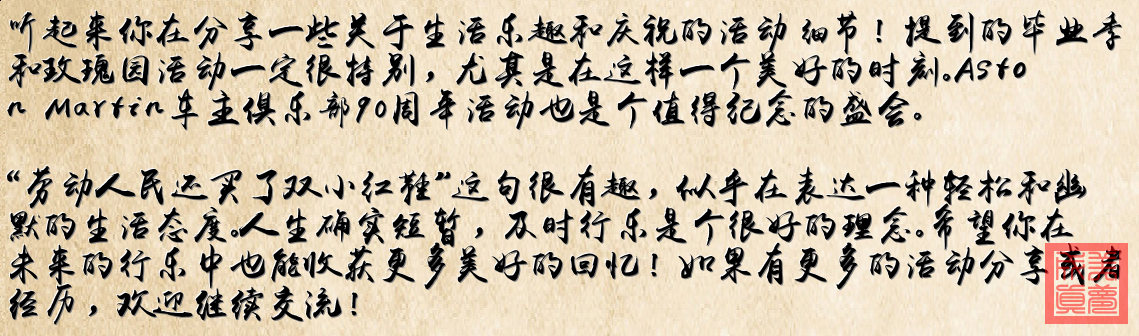 听起来你在分享一些关于生活乐趣和庆祝的活动细节！提到的毕业季
和玫瑰园活动一定很特别，尤其是在这样一个美好的时刻。Asto
n Martin车主俱乐部90周年活动也是个值得纪念的盛会。
“劳动人民还买了双小红鞋”这句很有趣，似乎在表达一种轻松和幽
默的生活态度。人生确实短暂，及时行乐是个很好的理念。希望你在
未来的行乐中也能收获更多美好的回忆！如果有更多的活动分享或者
经历，欢迎继续交流！